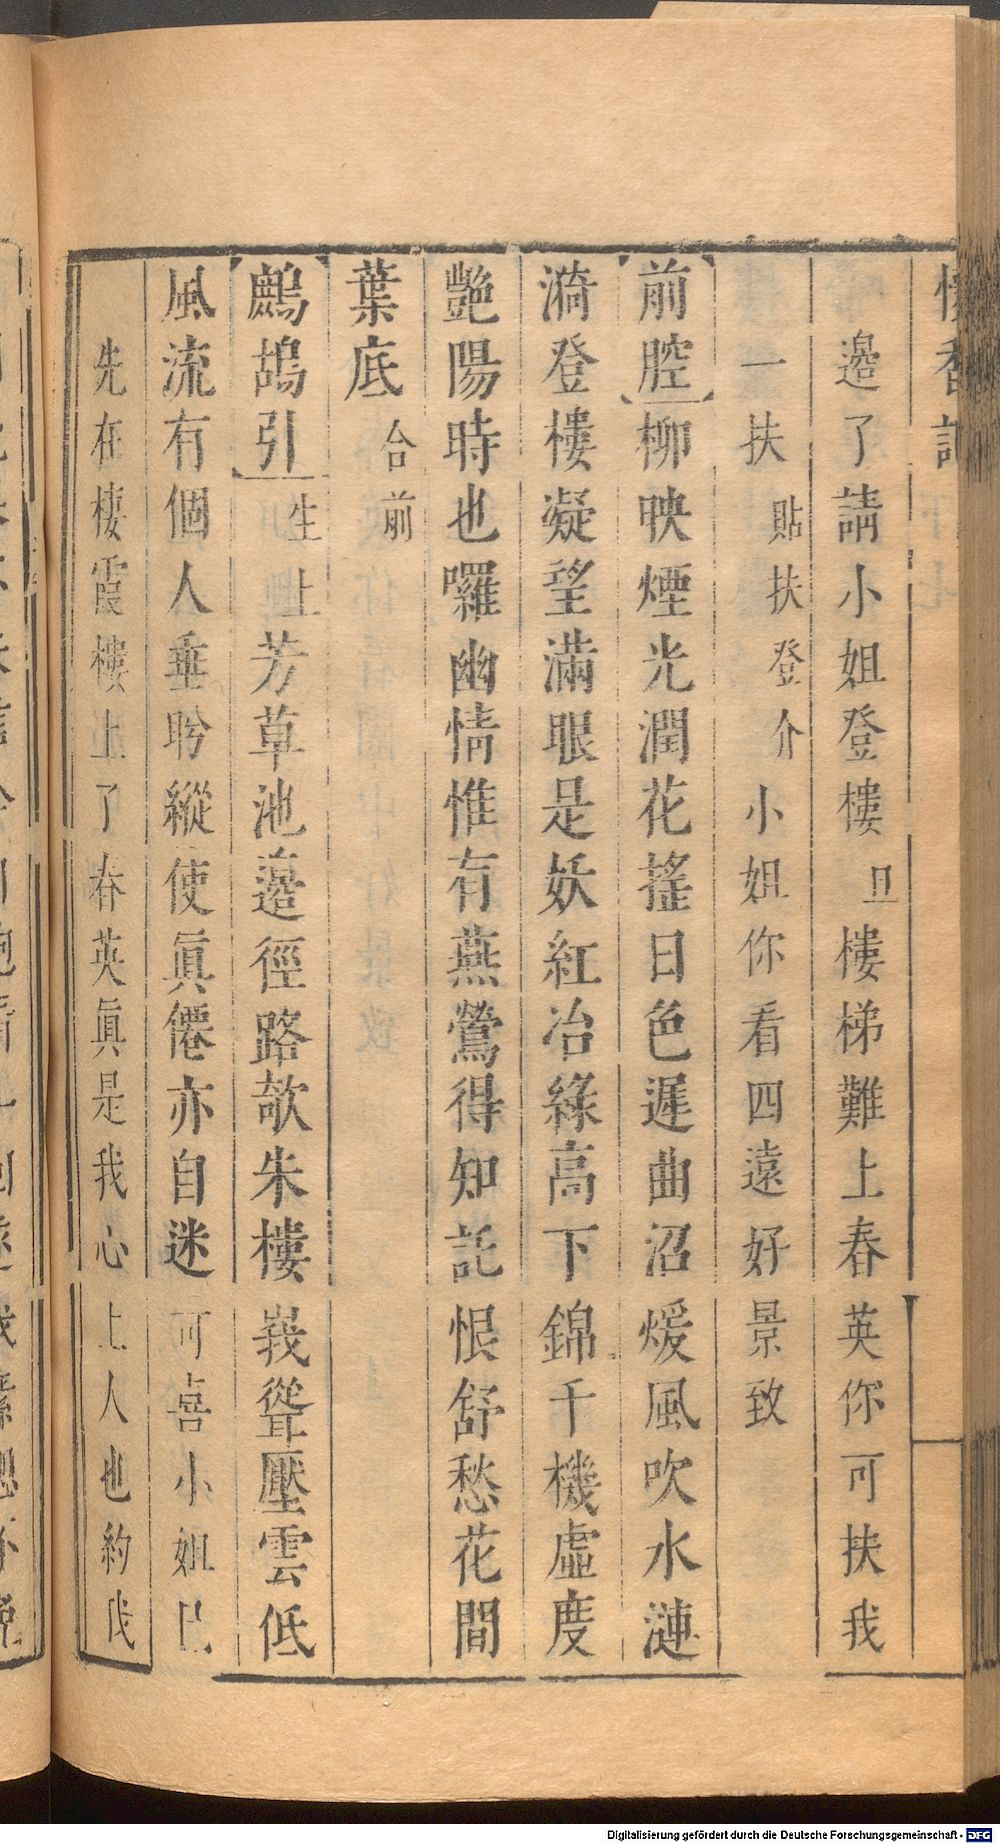 懷香記
邉了請小姐登樓旦樓梯難上春英你可扶我
一扶貼扶登介小姐你看四遠好景致
前腔柳映煙光潤花搖日色遲曲沼煖風吹水漣
漪登樓凝望滿眼是妖紅冶綠高下錦千機虛度
艷陽時也囉幽情惟有燕鶯得知託恨舒愁花間
葉底合前
鷓鴣引生上芳草池邉徑路欹朱樓峩聳壓雲低
風流有個人垂盻縱使眞僊亦自迷可喜小姐已
先在棲霞樓上了春英眞是我心上人也約我
Digitalisierung gefördert durch die Deutsche Forschungsgemeinschaft - DFG